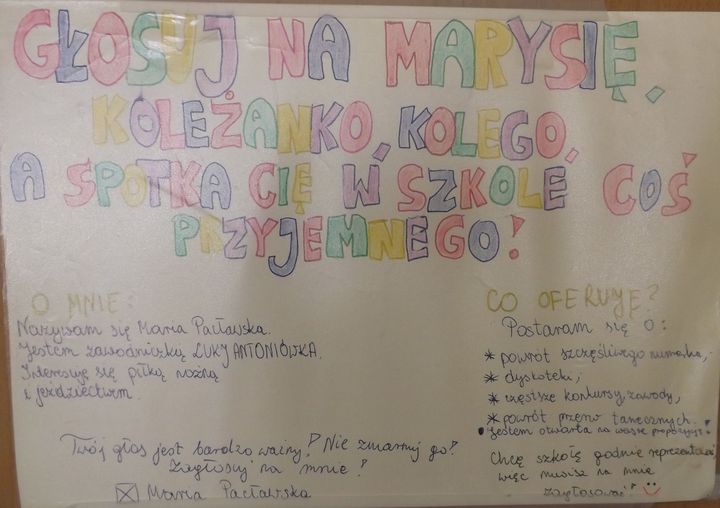 GŁOSUJ NA MARYSIĘ,
KOLEŻANKO, KOLEGO,
A SPOTKA CIĘ W SZKOLE COŚ
PRZYJEMNEGO!
O MNIE:
Nazywam się Maria Pacławska.
Jestem zawodniczką ŁUKY ANTONIÓWKA.
Interesuję się piłką nożną
i jeździectwem.
CO OFERUJĘ?
Postaram się o:
* powrót szczęśliwego numerka,
* dyskoteki,
* częstsze konkursy, zawody,
* powrót przerw tanecznych.
Jestem otwarta na wasze propozycje!
Chcę szkołę godnie reprezentować
więc musisz na mnie
zagłosować!
Twój głos jest bardzo ważny! Nie zmarnuj go!
Zagłosuj na mnie!
Maria Pacławska